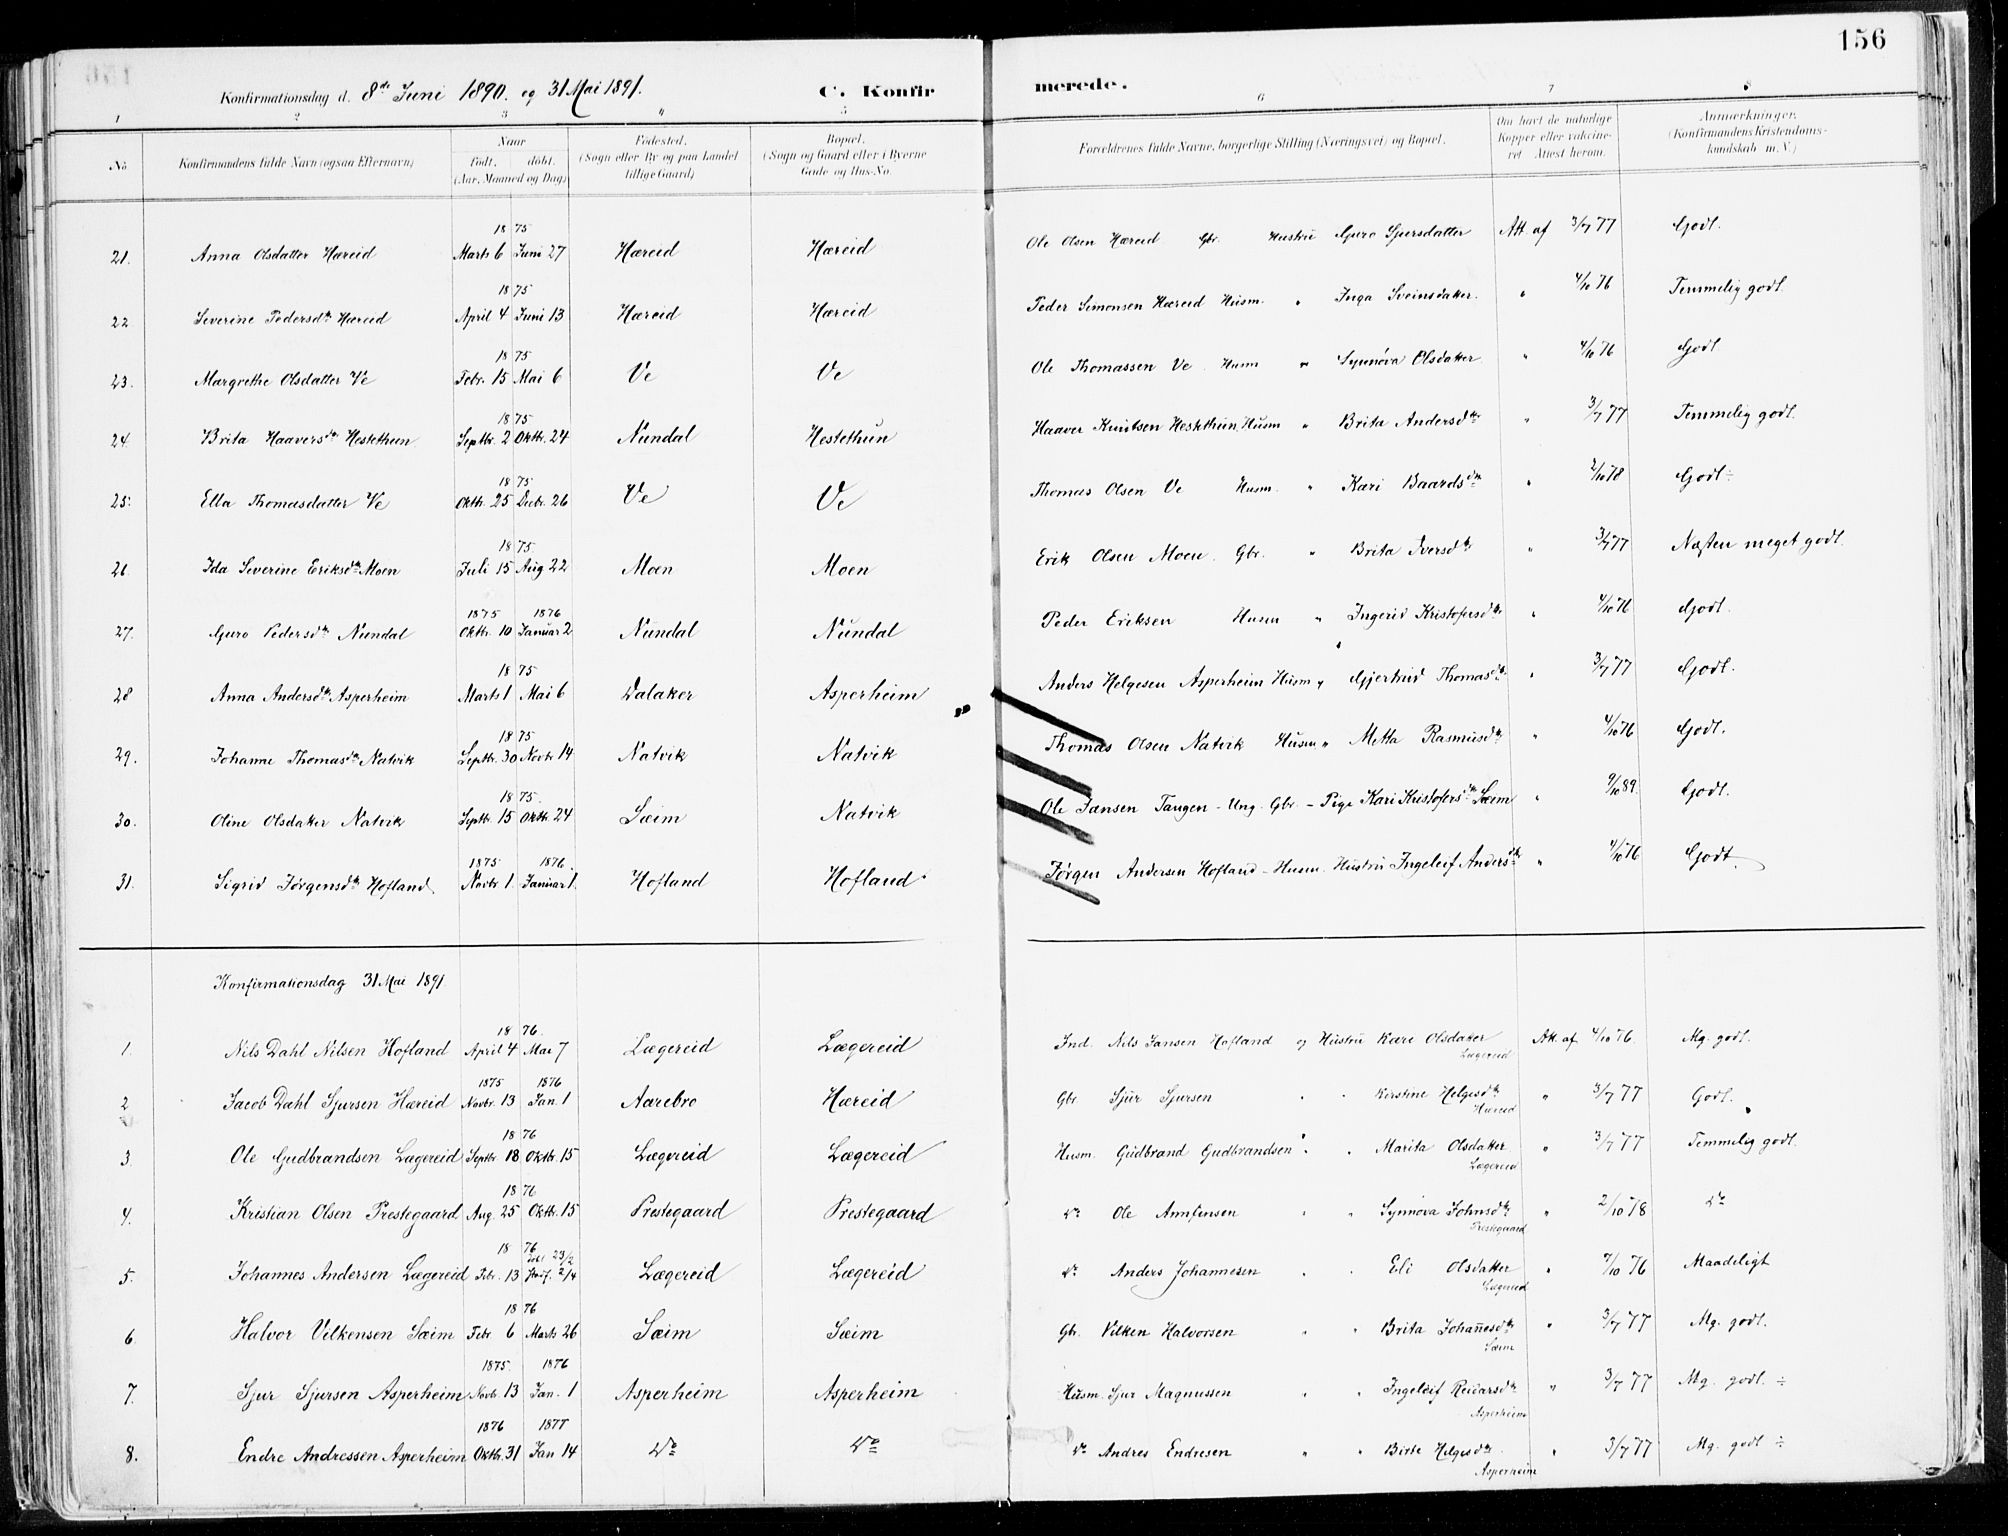 156
Konfirmationsdag d. 8de Juni 1890. og 31 Mai 1891. C. Konfirmerede.
1 2 3 4 5 6 7 8
No. Konfirmandens fulde Navn (ogsaa Efternavn) Naar født, døbt. (Aar, Maaned og Dag) Fødested. (Sogn eller By og paa Landet tillige Gaard) Bopæl. (Sogn og Gaard eller i Byerne Gade og Hus-No. Forældrenes fulde Navne, borgerlige Stilling (Næringsvei) og Bopæl. Om havt de naturlige Kopper eller vaccineret. Attest herom. Anmærkninger. (Konfirmandens Kristendomskundskab m. V.)
21. Anna Olsdatter Hæreid 1875 Marts 6 Juni 27 Hæreid Hæreid Ole Olsen Hæreid Gbr. Hustru Guro Sjursdatter Att. af 3/7 77 Godt.
22 Severine Pedersdtr Hæreid 1875 April 4 Juni 13 Hæreid Hæreid Peder Simonsen Hæreid Husm. " Inga Sveinsdatter. " 4/10 76 Temmelig godt.
23. Margrethe Olsdatter Ve 1875 Febr. 15 Mai 6 Ve Ve Ole Thomassen Ve Husm " Synnøva Olsdatter " 4/10 76 Godt
24. Brita Haaversdtr Hestethun 1875 Septbr. 2 Oktbr. 24 Nundal Hestethun Haaver Knutsen Hestethun Husm " Brita Andersdtr " 3/7 77 Temmelig godt.
25. Ella Thomasdatter Ve 1875 Oktbr. 25 Decbr. 26 Ve Ve Thomas Olsen Ve Husm. " Kari Baardsdtr " 2/10 78 Godt ÷
26. Ida Severine Eriksdtr Moen 1875 Juli 15 Aug 22 Moen Moen Erik Olsen Moen. Gbr. " Brita Iversdtr " 3/7 77 Næsten meget godt.
27. Guro Pedersdtr Nundal 1875 Oktbr. 10 1876 Januar 2 Nundal Nundal Peder Eriksen Husm " Ingerid Kristofersdtr " 4/10 76 Godt.
28 Anna Andersdtr Asperheim 1875 Marts 1 Mai 6 Dalaker Asperheim Anders Helgesen Asperheim Husm " Gjertrud Thomasdtr " 3/7 77 Godt.
29. Johanne Thomasdtr Natvik 1875 Septbr. 30 Novbr 14 Natvik Natvik Thomas Olsen Natvik Husm " Metta Rasmusdtr " 4/10 76 Godt.
30. Oline Olsdatter Natvik 1875 Septbr. 15 Oktbr. 24 Sæim Natvik Ole Jansen Tangen - Ung. Gbr. - Pige Kari Kristofersdtr Sæim " 9/10 89. Godt.
31. Sigrid Jørgensdtr Hofland 1875 Novbr. 1 1876 Januar 1. Hofland Hofland Jørgen Andersen Hofland - Husm. Hustru Ingeleif Andersdtr " 4/10 76 Godt.
Konfirmationsdag 31 Mai 1891
1. Nils Dahl Nilsen Hofland 1876 April 4 Mai 7 Lægereid Lægereid Ind. Nils Jansen Hofland og Hustru Kari Olsdatter Lægereid Att. af 4/10 76. Mg. godt.
2 Jacob Dahl Sjursen Hæreid 1875 Novbr. 13 1876 Jan. 1 Aarebro Hæreid Gbr. Sjur Sjursen " " Kirstine Helgesdtr Hæreid " 3/7 77 Godt.
3. Ole Gudbrandsen Lægereid 1876 Septbr. 18 Oktbr. 15 Lægereid Lægereid Husm. Gudbrand Gudbrandsen " " Marita Olsdatter Lægereid " 3/7 77 Temmelig godt.
4. Kristian Olsen Prestegaard 1876 Aug. 25 Oktbr. 15 Prestegaard Prestegaard Do Ole Amfinsen " " Synnøva Johnsdtr Prestegaard " 2/10 78 Do
5. Johannes Andersen Lægereid 1876 Febr. 13 23/2 2/4 Lægereid Lægereid Do Anders Johannesen " " Eli Olsdatter Lægereid " 7/10 76 Maadeligt
6. Halvor Vilkensen Sæim 1876 Febr. 6 Marts 26 Sæim Sæim Gbr. Vilken Halvorsen " " Brita Johanesdtr Sæim " 3/7 77 Mg. godt.
7. Sjur Sjursen Asperheim 1875 Novbr. 13 1876 Jan. 1 Asperheim Asperheim Husm. Sjur Magnussen " " Ingeleif Reidarsdtr Asperheim " 3/7 77 Mg. godt. ÷
8. Endre Andressen Asperheim 1876 Oktbr. 31 1877 Jan 14 Do Do Do Andres Endresen " " Birte Helgesdtr Asperheim " 3/7 77 Mg. godt ÷